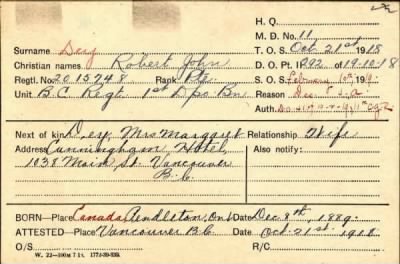 H. Q.
M. D. No. 11
Surname Dey T. O. S. Oct 21st 1918
Christian names Robert John D. O. Pt. I 292 of 19-10-18
Regtl. No. 2015748 Rank Pte. S. O. S. February 10th 1919
Unit B.C. Regt. 1st Dpo Bn Reason
Auth.
Next of kin Dey, Mrs Margaret Relationship Wife
Address Cunningham Hotel, Also notify:
1038 Main St. Vancouver
B.C.
BORN—Place Canada, Pendleton, Ont Date Dec 8th, 1889.
ATTESTED—Place Vancouver B.C Date Oct. 21st 1918
O/S R/C